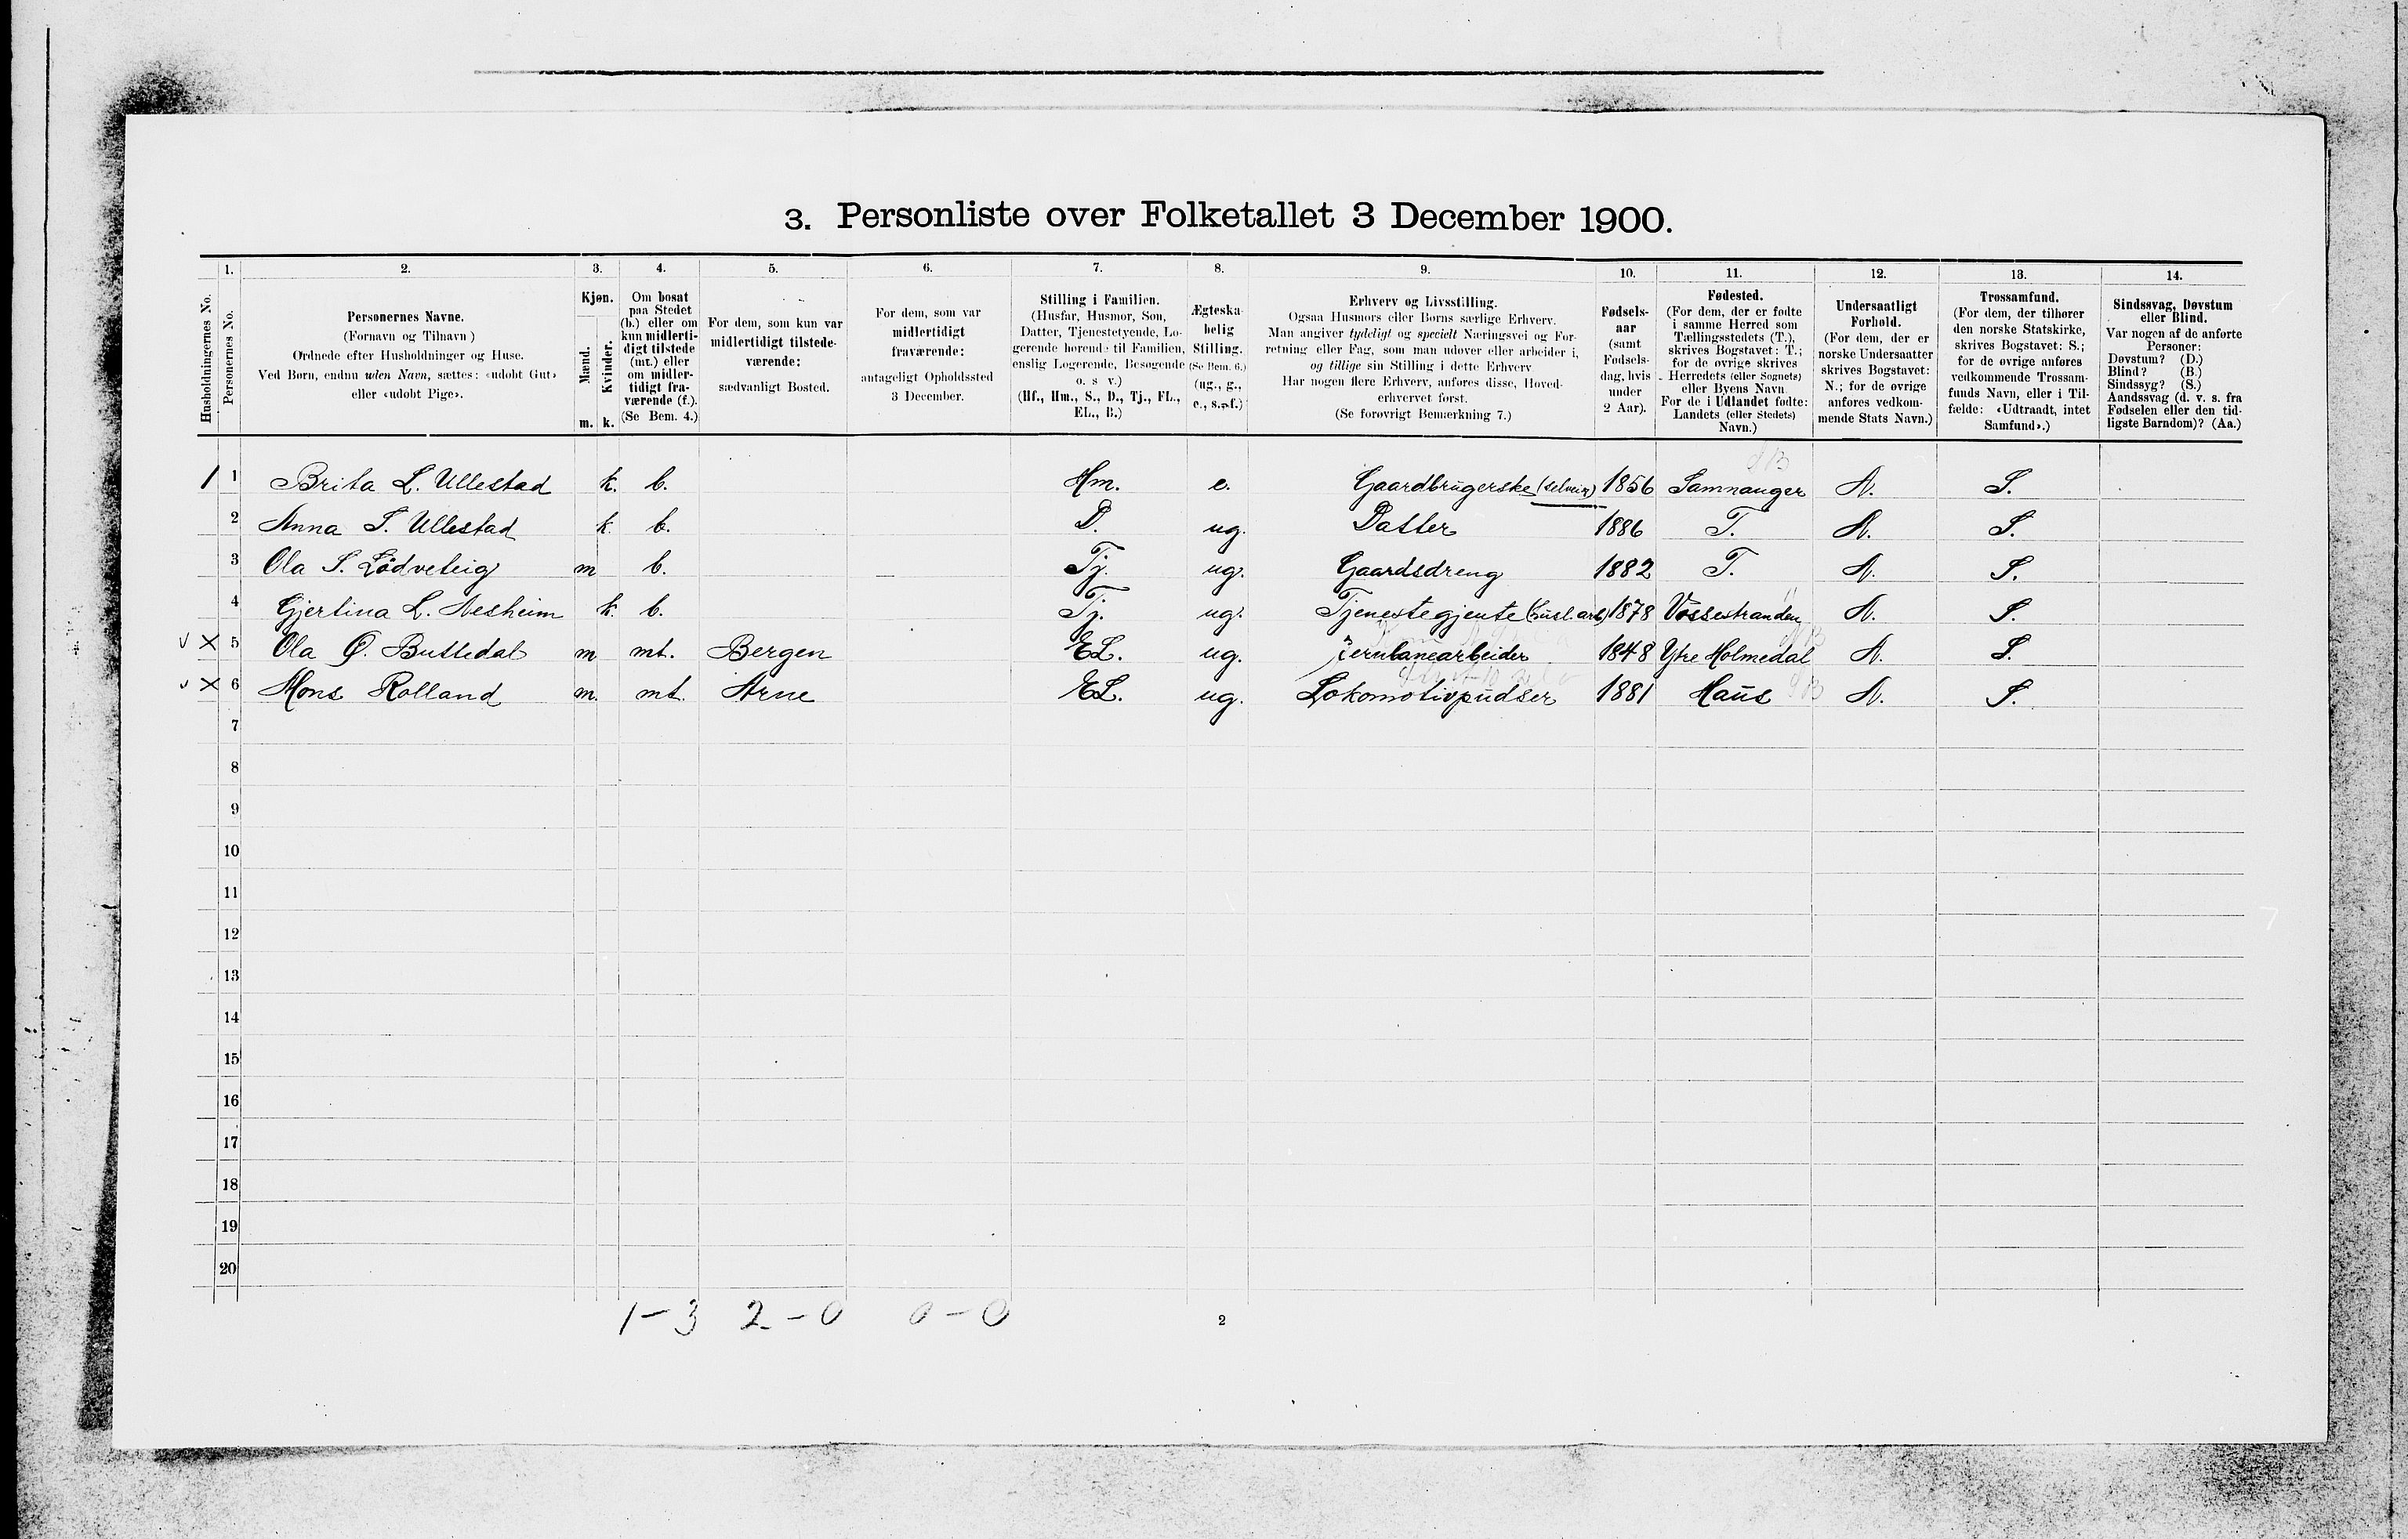 3. Personliste over Folketallet 3 December 1900.
Husholdningernes No.
1.
Personernes No.
2.
Personernes Navne.
(Fornavn og Tilnavn)
Ordnede efter Husholdninger og Huse.
Ved Børn, endnu uden Navn, sættes: «udøbt Gut»
eller «udøbt Pige».
3.
Kjøn.
Mænd.
Kvinder.
m. k.
4.
Om bosat
paa Stedet
(b.) eller om
kun midlerti-
digt tilstede
(mt.) eller
om midler-
tidigt fra-
værende (f.).
(Se Bem. 4.)
5.
For dem, som kun var
midlertidigt tilstede-
værende:
sædvanligt Bosted.
6.
For dem, som var
midlertidigt
fraværende:
antageligt Opholdssted
3 December.
7.
Stilling i Familien.
(Husfar, Husmor, Søn,
Datter, Tjenestetyende, Lo-
gerende hørende til Familien,
enslig Logerende, Besøgende
o. s v.)
(Hf., Hm., S., D., Tj., FL.,
EL., B.)
8.
Ægteska-
belig
Stilling.
(Se Bem. 6.)
(ug., g.,
e., s., f.)
9.
Erhverv og Livsstilling.
Ogsaa Husmors eller Børns særlige Erhverv.
Man angiver tydeligt og specielt Næringsvei og For-
retning eller Fag, som man udøver eller arbeider i,
og tillige sin Stilling i dette Erhverv
Har nogen flere Erhverv, anføres disse, Hoved-
erhvervet først.
(Se forøvrigt Bemærkning 7.)
10.
Fødsels-
aar
(samt
Fødsels-
dag, hvis
under
2 Aar).
11.
Fødested.
(For dem, der er fødte
i samme Herred som
Tællingsstedets (T.),
skrives Bogstavet: T.;
for de øvrige skrives
Herredets (eller Sognets)
eller Byens Navn
For de i Udlandet fødte:
Landets (eller Stedets)
Navn.)
12.
Undersaatligt
Forhold.
(For dem, der er
norske Undersaatter
skrives Bogstavet:
N.; for de øvrige
anføres vedkom-
mende Stats Navn.)
13.
Trossamfund.
(For dem, der tilhører
den norske Statskirke,
skrives Bogstavet: S.;
for de øvrige anføres
vedkommende Trossam-
funds Navn, eller i Til-
fælde: «Udtraadt, intet
Samfund».)
14.
Sindssvag, Døvstum
eller Blind.
Var nogen af de anførte
Personer:
Døvstum? (D.)
Blind? (B.)
Sindssyg? (S.)
Aandssvag (d. v. s. fra
Fødselen eller den tid-
ligste Barndom)? (Aa.)
1 1 Brita L. Ullestad k. b. Hm. e. Gaardbrugerske (selveier) 1856 Samnanger N. S.
2 Anna S. Ullestad k. b. D. ug. Datter 1886 T. N. S.
3 Ola S. Lødveteig m b. Tj. ug. Gaardsdreng 1882 T. N. S.
4 Gjertina L. Nesheim k. b. Tj. ug. Tjenestegjente (husl. arb) 1878 Vossestranden N. S.
X 5 Ola Ø. Buttedal m mt. Bergen EL. ug. Jernbanearbeider 1848 Ytre Holmedal N. S.
X 6 Mons Rolland m. mt. Arne EL. ug. Lokomotivpudser 1881 Haus N. S.
7
8
9
10
11
12
13
14
15
16
17
18
19
20
1-3 2-0 0-0
2